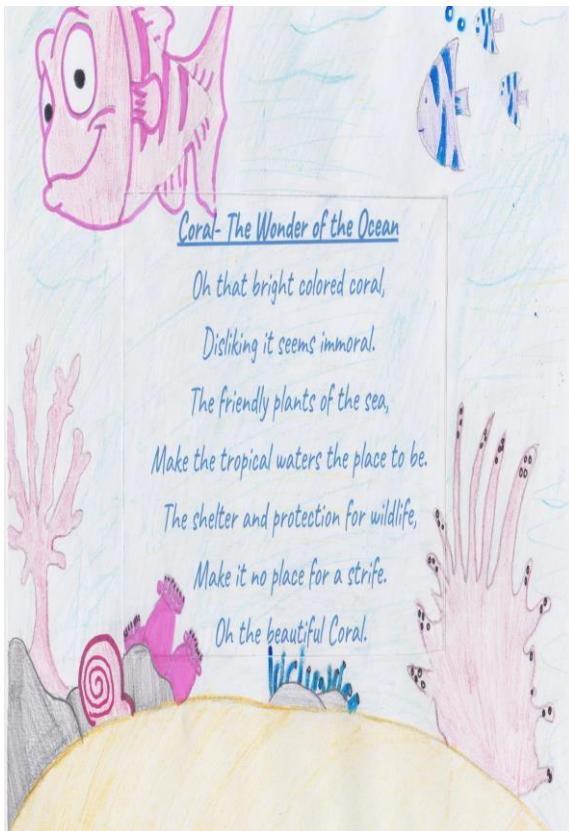 Coral- The Wonder of the Ocean
Oh that bright colored coral,
Disliking it seems immoral.
The friendly plants of the sea,
Make the tropical waters the place to be.
The shelter and protection for wildlife,
Make it no place for a strife.
Oh the beautiful Coral.